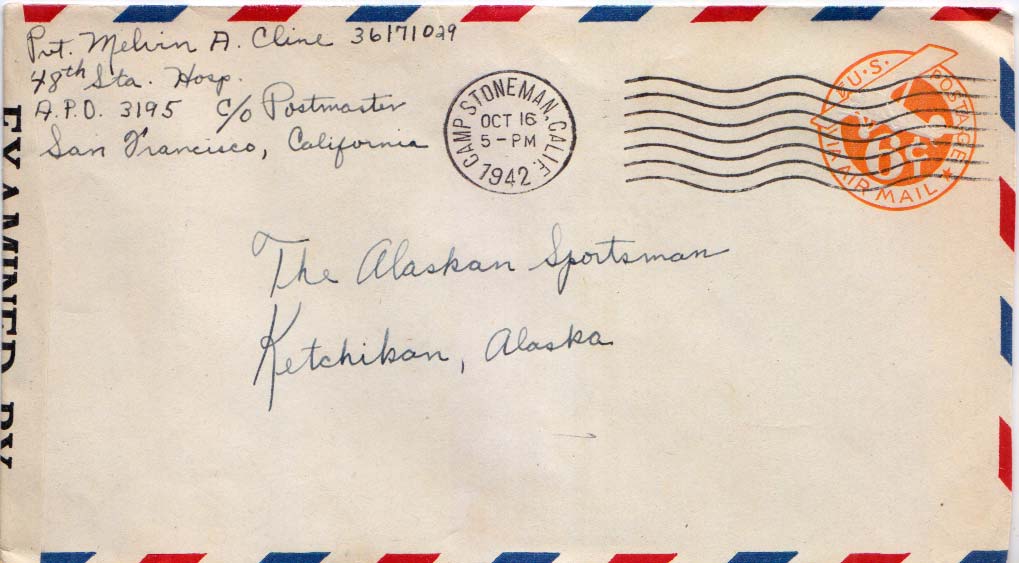 Pvt. Melvin A. Cline 36171029
48th Sta. Hosp.
A.P.O. 3195 c/o Postmaster
San Francisco, California
CAMP STONEMAN, CALIF.
OCT 16
5-PM
1942
U.S. POSTAGE
6¢
VIA AIR MAIL
The Alaskan Sportsman
Ketchikan, Alaska
EXAMINED BY